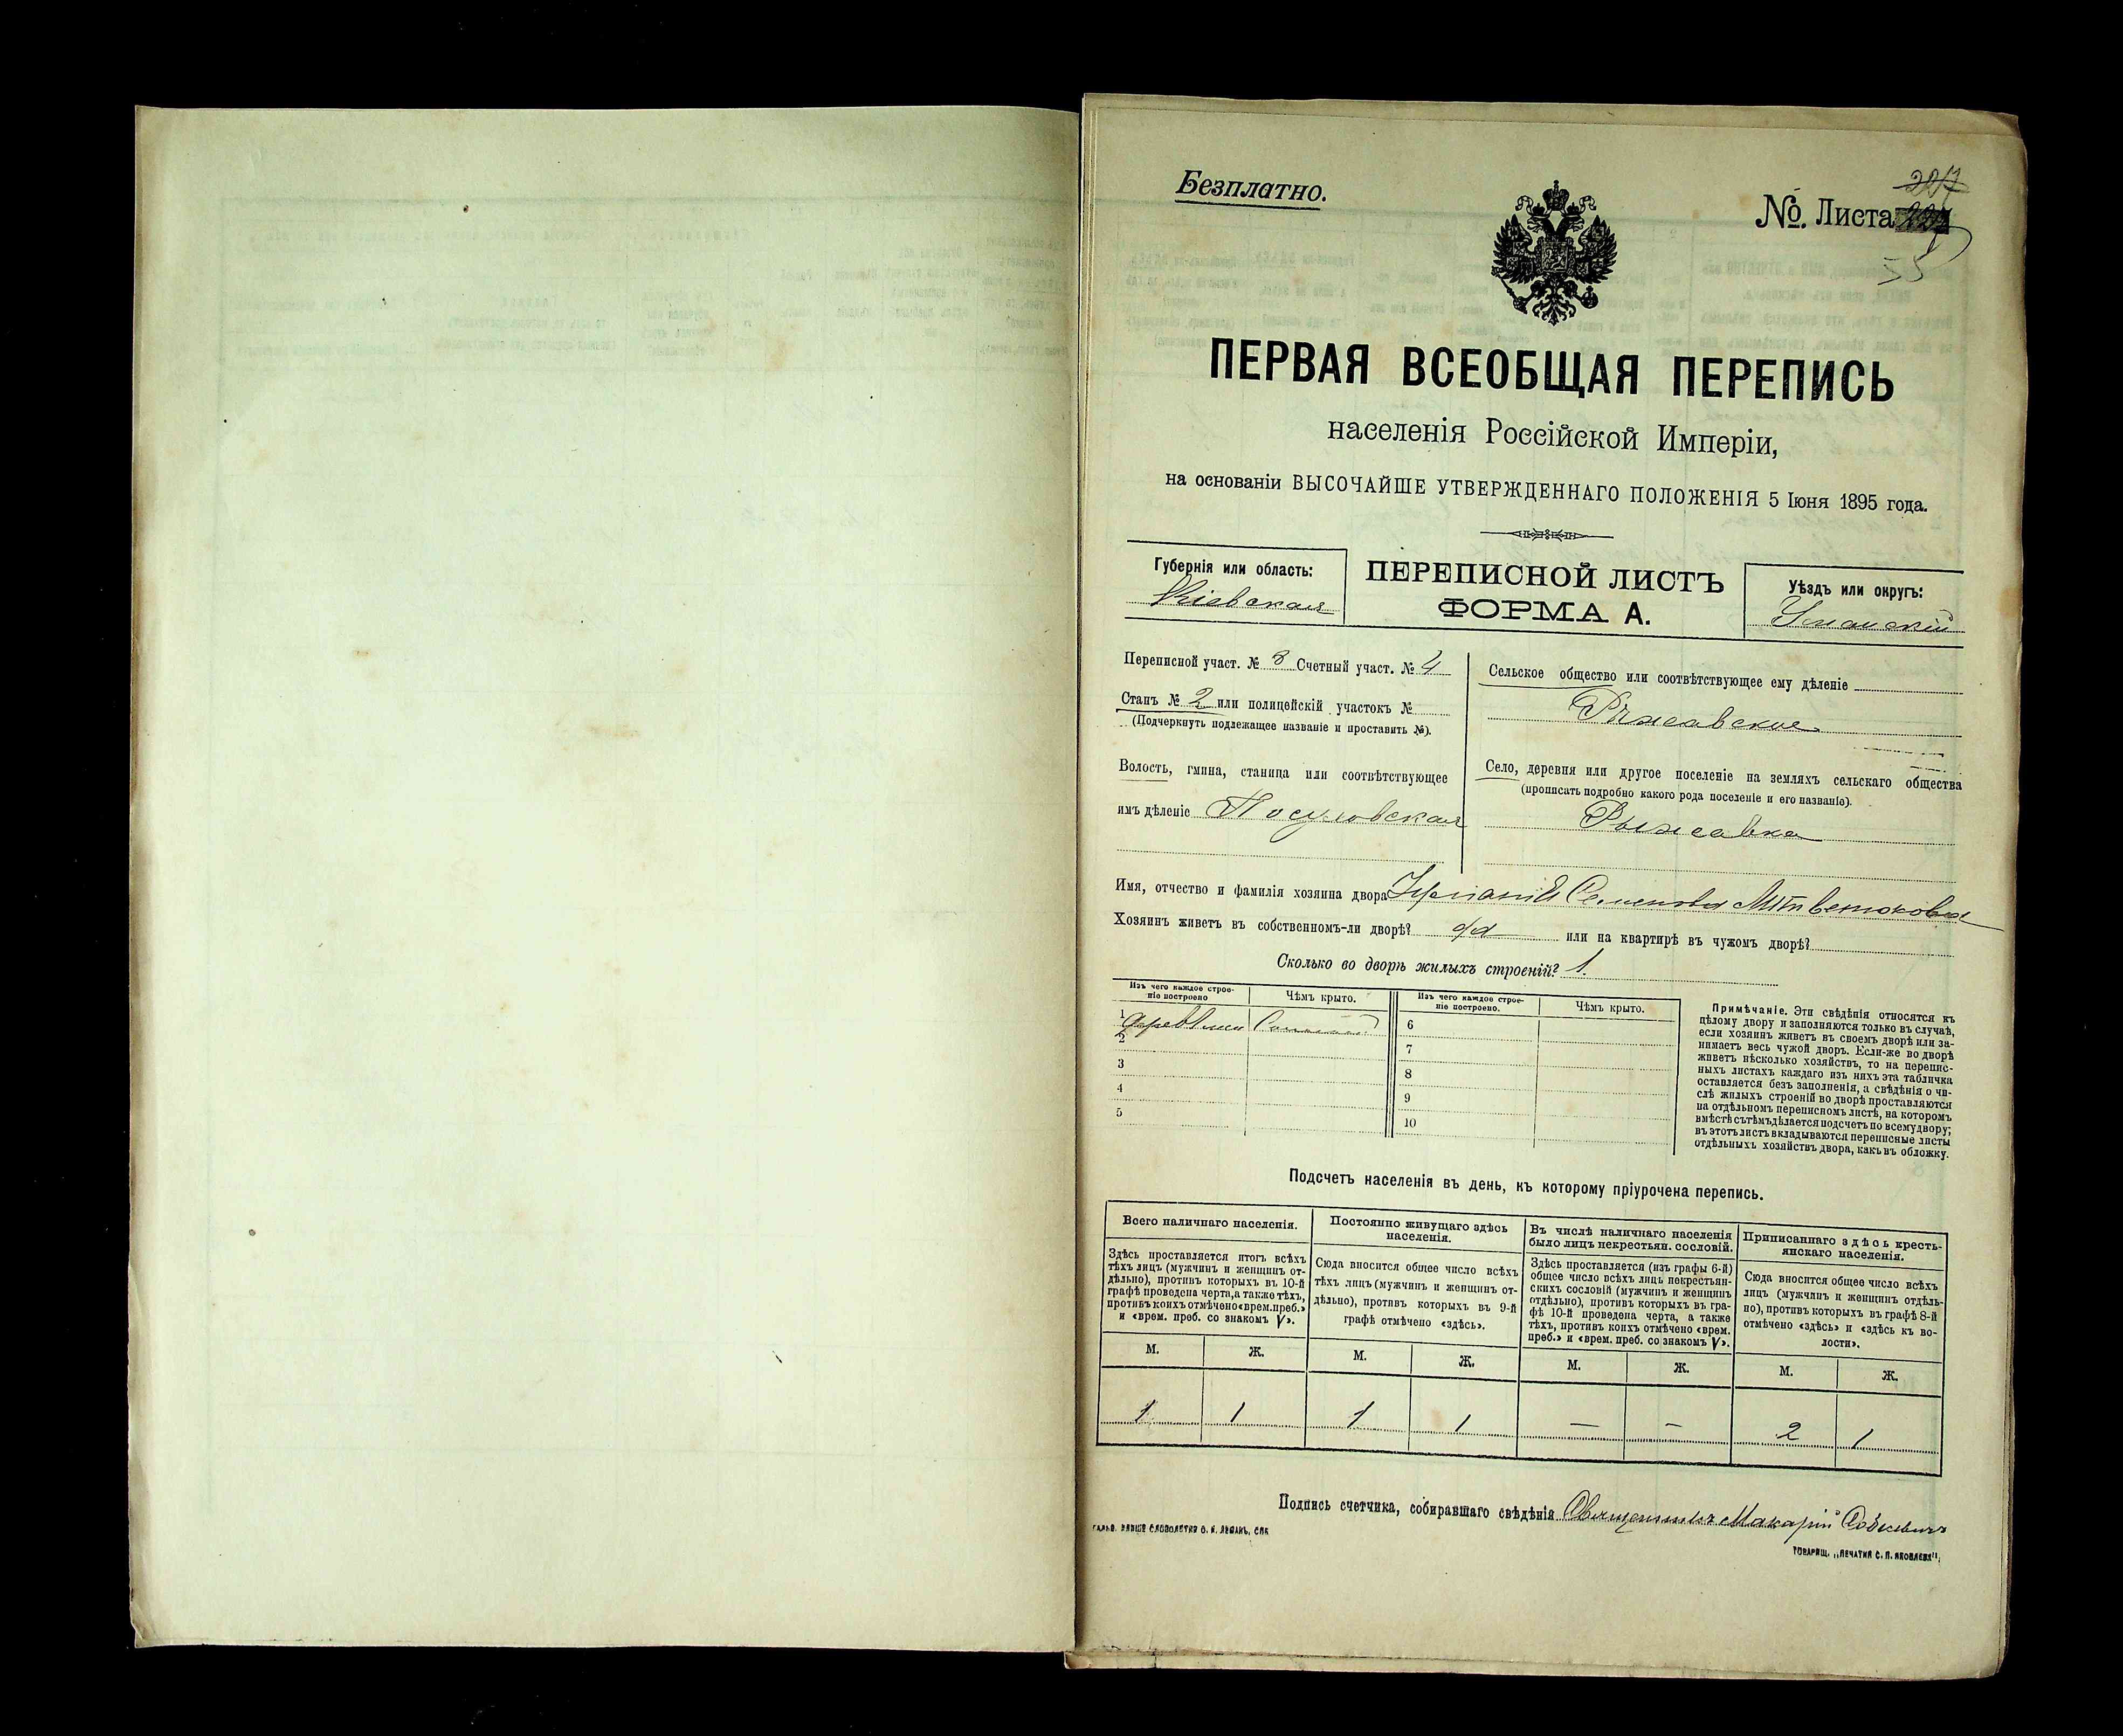 Безплатно.
№. Листа
55
ПЕРВАЯ ВСЕОБЩАЯ ПЕРЕПИСЬ
населенія Россійской Имперіи,
на основаніи ВЫСОЧАЙШЕ УТВЕРЖДЕННАГО ПОЛОЖЕНІЯ 5 Іюня 1895 года.
Губернія или область:
Кіевская
ПЕРЕПИСНОЙ ЛИСТЪ
ФОРМА А.
Уѣздъ или округъ:
Уманскій
Переписной участ. № 8 Счетный участ. № 4
Станъ № 2 или полицейскій участокъ №
(Подчеркнуть подлежащее названіе и проставить №).
Волость, гмина, станица или соотвѣтствующее
имъ дѣленіе
Сельское общество или соотвѣтствующее ему дѣленіе
Рыжавское
Село, деревня или другое поселеніе на земляхъ сельскаго общества
(прописать подробно какого рода поселеніе и его названіе).
Рыжавка
Имя, отчество и фамилія хозяина двора
Хозяинъ живетъ въ собственномъ-ли дворѣ? да или на квартирѣ въ чужомъ дворѣ?
Сколько во дворѣ жилыхъ строеній? 1.
Изъ чего каждое строе-
ніе построено
Чѣмъ крыто.
Изъ чего каждое строе-
ніе построено.
Чѣмъ крыто.
1
2
3
4
5
6
7
8
9
10
Примѣчаніе. Эти свѣдѣнія относятся къ
цѣлому двору и заполняются только въ случаѣ,
если хозяинъ живетъ въ своемъ дворѣ или за-
нимаетъ весь чужой дворъ. Если-же во дворѣ
живетъ нѣсколько хозяйствъ, то на перепис-
ныхъ листахъ каждаго изъ нихъ эта табличка
оставляется безъ заполненія, а свѣдѣнія о чи-
слѣ жилыхъ строеній во дворѣ проставляются
на отдѣльномъ переписномъ листѣ, на которомъ
вмѣстѣ съ тѣмъ дѣлается подсчетъ по всему двору;
въ этотъ листъ вкладываются переписные листы
отдѣльныхъ хозяйствъ двора, какъ въ обложку.
Подсчетъ населенія въ день, къ которому пріурочена перепись.
Всего наличнаго населенія.
Здѣсь проставляется итогъ всѣхъ
тѣхъ лицъ (мужчинъ и женщинъ от-
дѣльно), противъ которыхъ въ 10-й
графѣ проведена черта, а также тѣхъ,
противъ коихъ отмѣчено «врем. преб.»
и «врем. преб. со знакомъ V».
Постоянно живущаго здѣсь
населенія.
Сюда вносится общее число всѣхъ
тѣхъ лицъ (мужчинъ и женщинъ от-
дѣльно), противъ которыхъ въ 9-й
графѣ отмѣчено «здѣсь».
Въ числѣ наличнаго населенія
было лицъ некрестьян. сословій.
Здѣсь проставляется (изъ графы 6-й)
общее число всѣхъ лицъ некрестьян-
скихъ сословій (мужчинъ и женщинъ
отдѣльно), противъ которыхъ въ гра-
фѣ 10-й проведена черта, а также
тѣхъ, противъ коихъ отмѣчено «врем.
преб.» и «врем. преб. со знакомъ V».
Приписаннаго здѣсь кресть-
янскаго населенія.
Сюда вносится общее число всѣхъ
лицъ (мужчинъ и женщинъ отдѣль-
но), противъ которыхъ въ графѣ 8-й
отмѣчено «здѣсь» и «здѣсь къ во-
лости».
М. Ж. М. Ж. М. Ж. М. Ж.
1 1 1 1 — — 2 1
Подпись счетчика, собиравшаго свѣдѣнія Священникъ Макарій
ТОВАРИЩ. „ПЕЧАТНЯ С. П. ЯКОВЛЕВА".